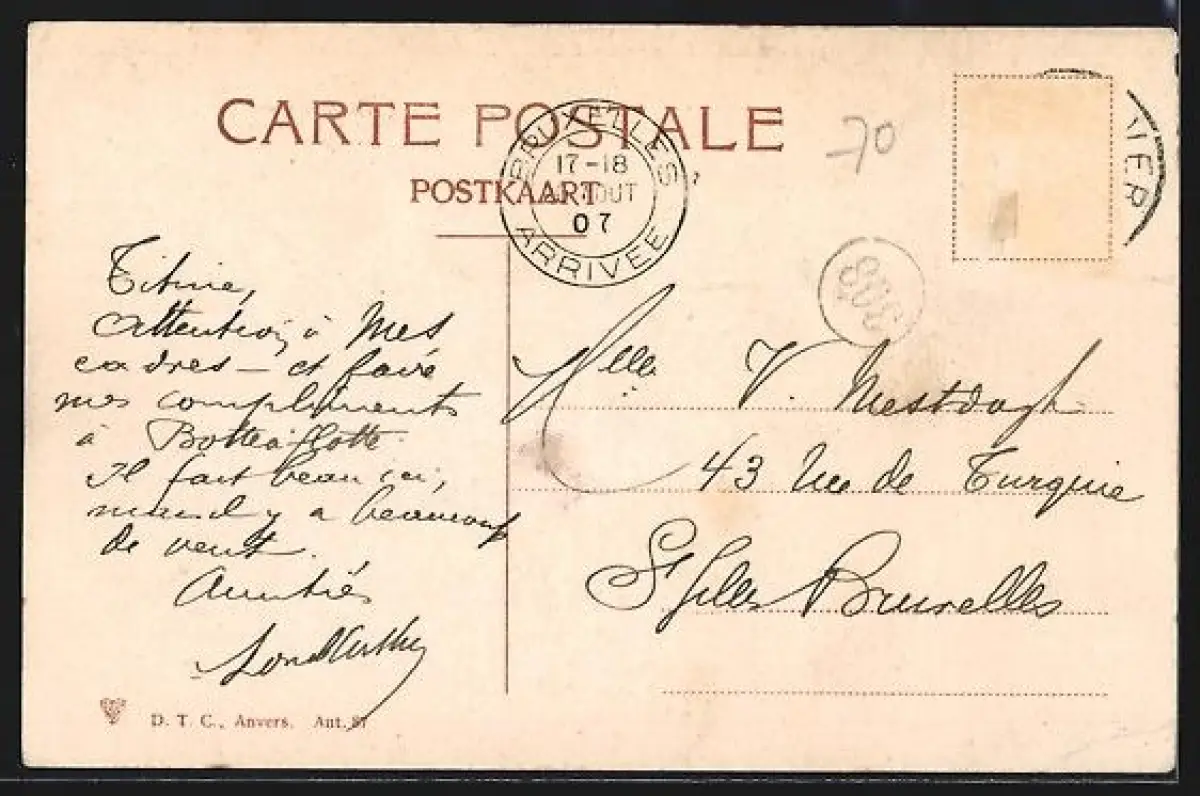 CARTE POSTALE
POSTKAART
BRUXELLES
17-18
OUT
07
ARRIVÉE
70
IER
303
Titine,
Attention à Mes
cadres – et faire
mes compliments
à
Il fait beau ici,
mais il y a beaucoup
de vent.
Amitiés
Mlle V. Mestdagh
43 Rue de Turquie
St Gilles Bruxelles
D. T. C., Anvers. Ant. 87